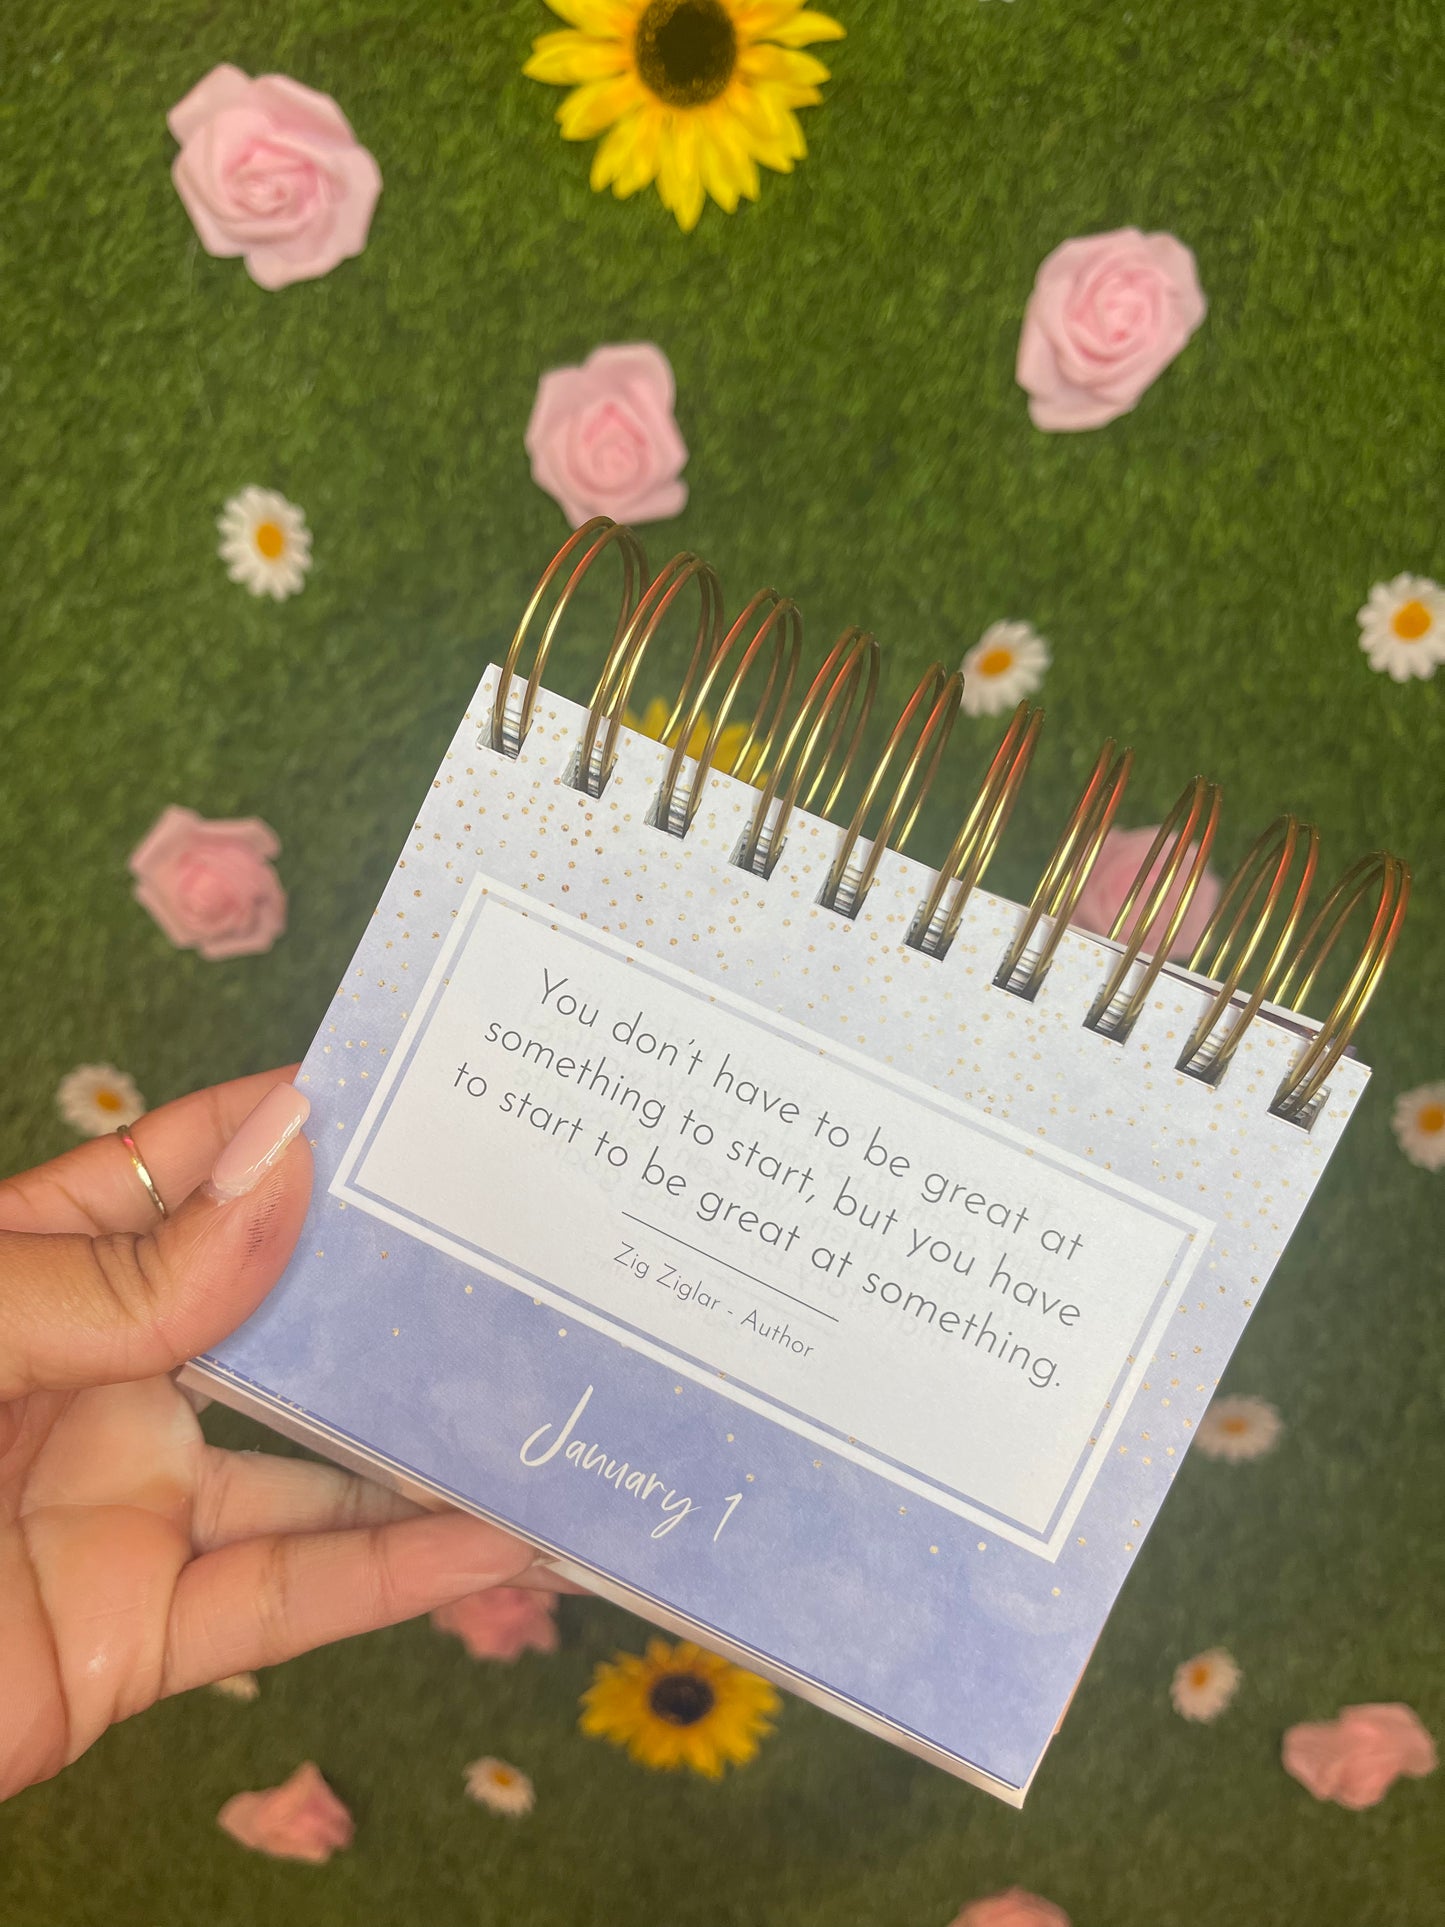 You don't have to be great at
something to start, but you have
to start to be great at something.
Zig Ziglar - Author
January 1